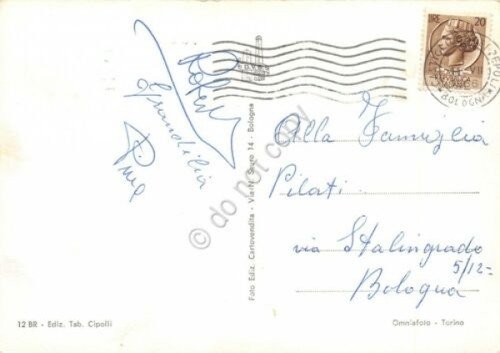 LIRE 20
BOLOGNA
Grandilia
Pina
Alla Famiglia
Pilati
via Stalingrado
5/12
Bologna
Foto Ediz. Cartovendita - Via 14 - Bologna
12 BR - Ediz. Tab. Cipolli
Omniafoto - Torino
do not copy